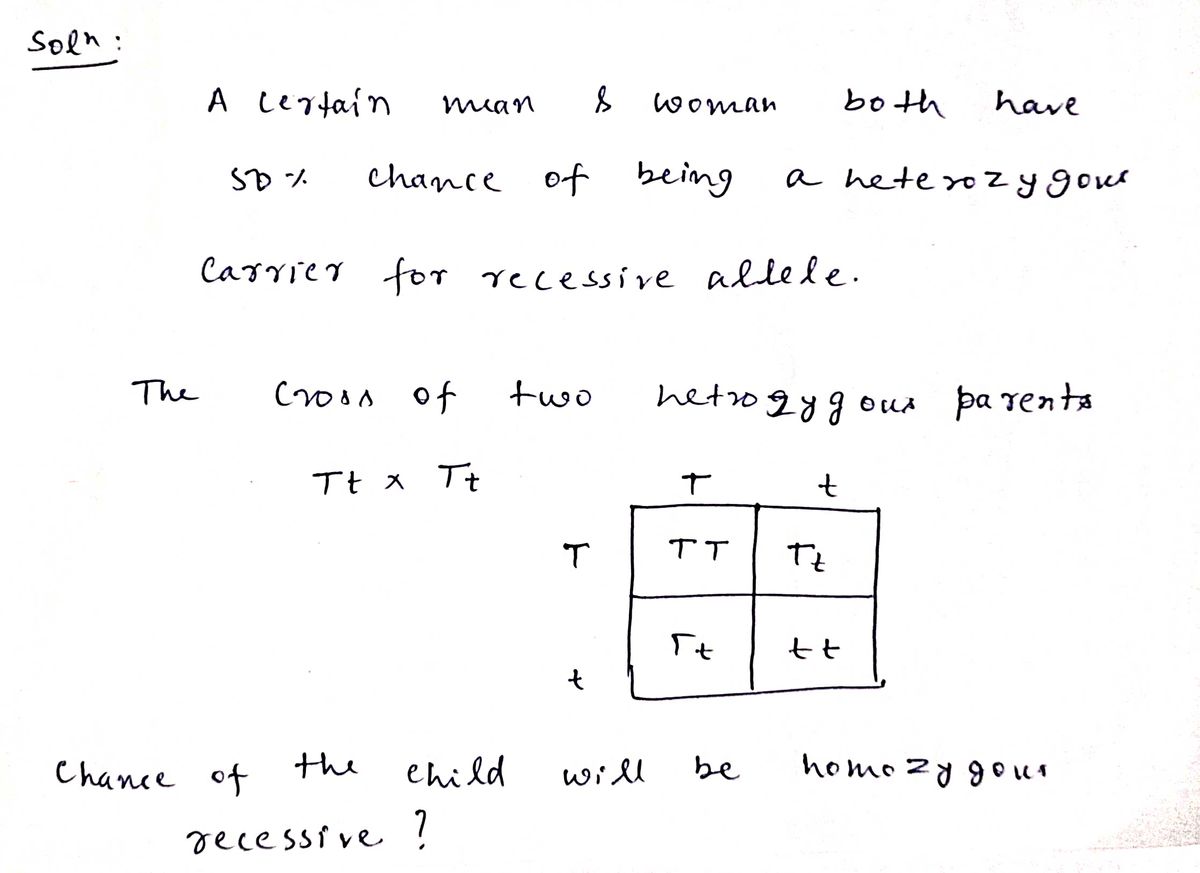 Soln :
A certain mean & woman both have
50 % chance of being a heterozygous
Carrier for recessive allele.
The Cross of two hetrozygous parents
Tt x Tt
T t
T TT Tt
t Tt tt
Chance of the child will be homozygous
recessive ?